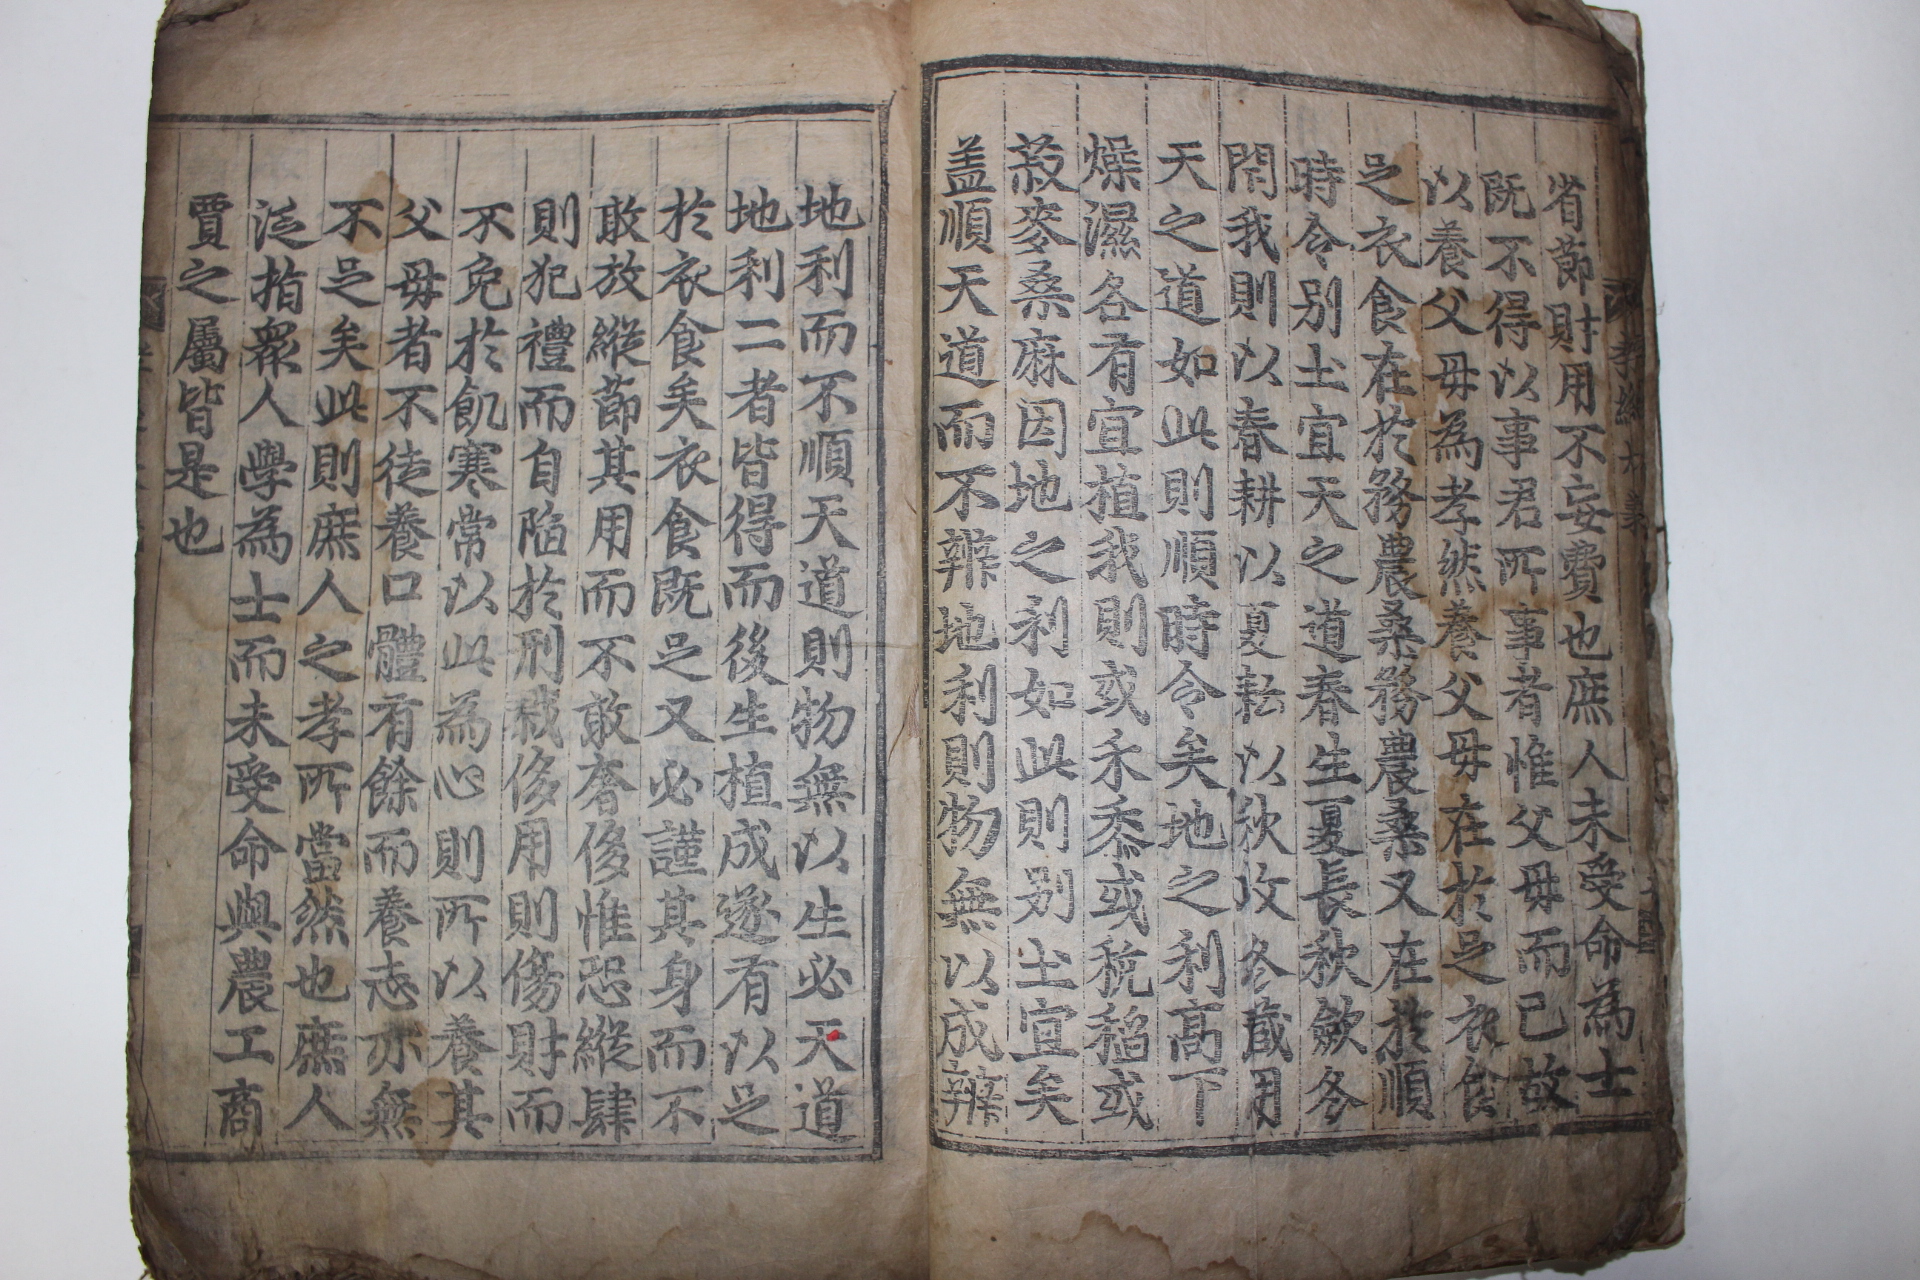 省節財用不妄費也庶人未受命為士
既不得以事君所事者惟父母而已故
以養父母為孝然養父母在於足衣食
足衣食在於務農桑務農桑又在於順
時令別土宜天之道春生夏長秋斂冬
閉我則以春耕以夏耘以秋收冬藏用
天之道如此則順時令矣地之利高下
燥濕各有宜植我則或禾黍或稅稻或
菽麥桑麻因地之利如此則別土宜矣
盖順天道而不辨地利則物無以成辨
地利而不順天道則物無以生必天道
地利二者皆得而後生植成遂有以足
於衣食矣衣食既足又必謹其身而不
敢放縱節其用而不敢奢侈惟恐縱肆
則犯禮而自陷於刑戮侈用則傷財而
不免於飢寒常以此為心則所以養其
父母者不徒養口體有餘而養志亦無
不足矣此則庶人之孝所當然也庶人
泛指衆人學為士而未受命與農工商
賈之屬皆是也